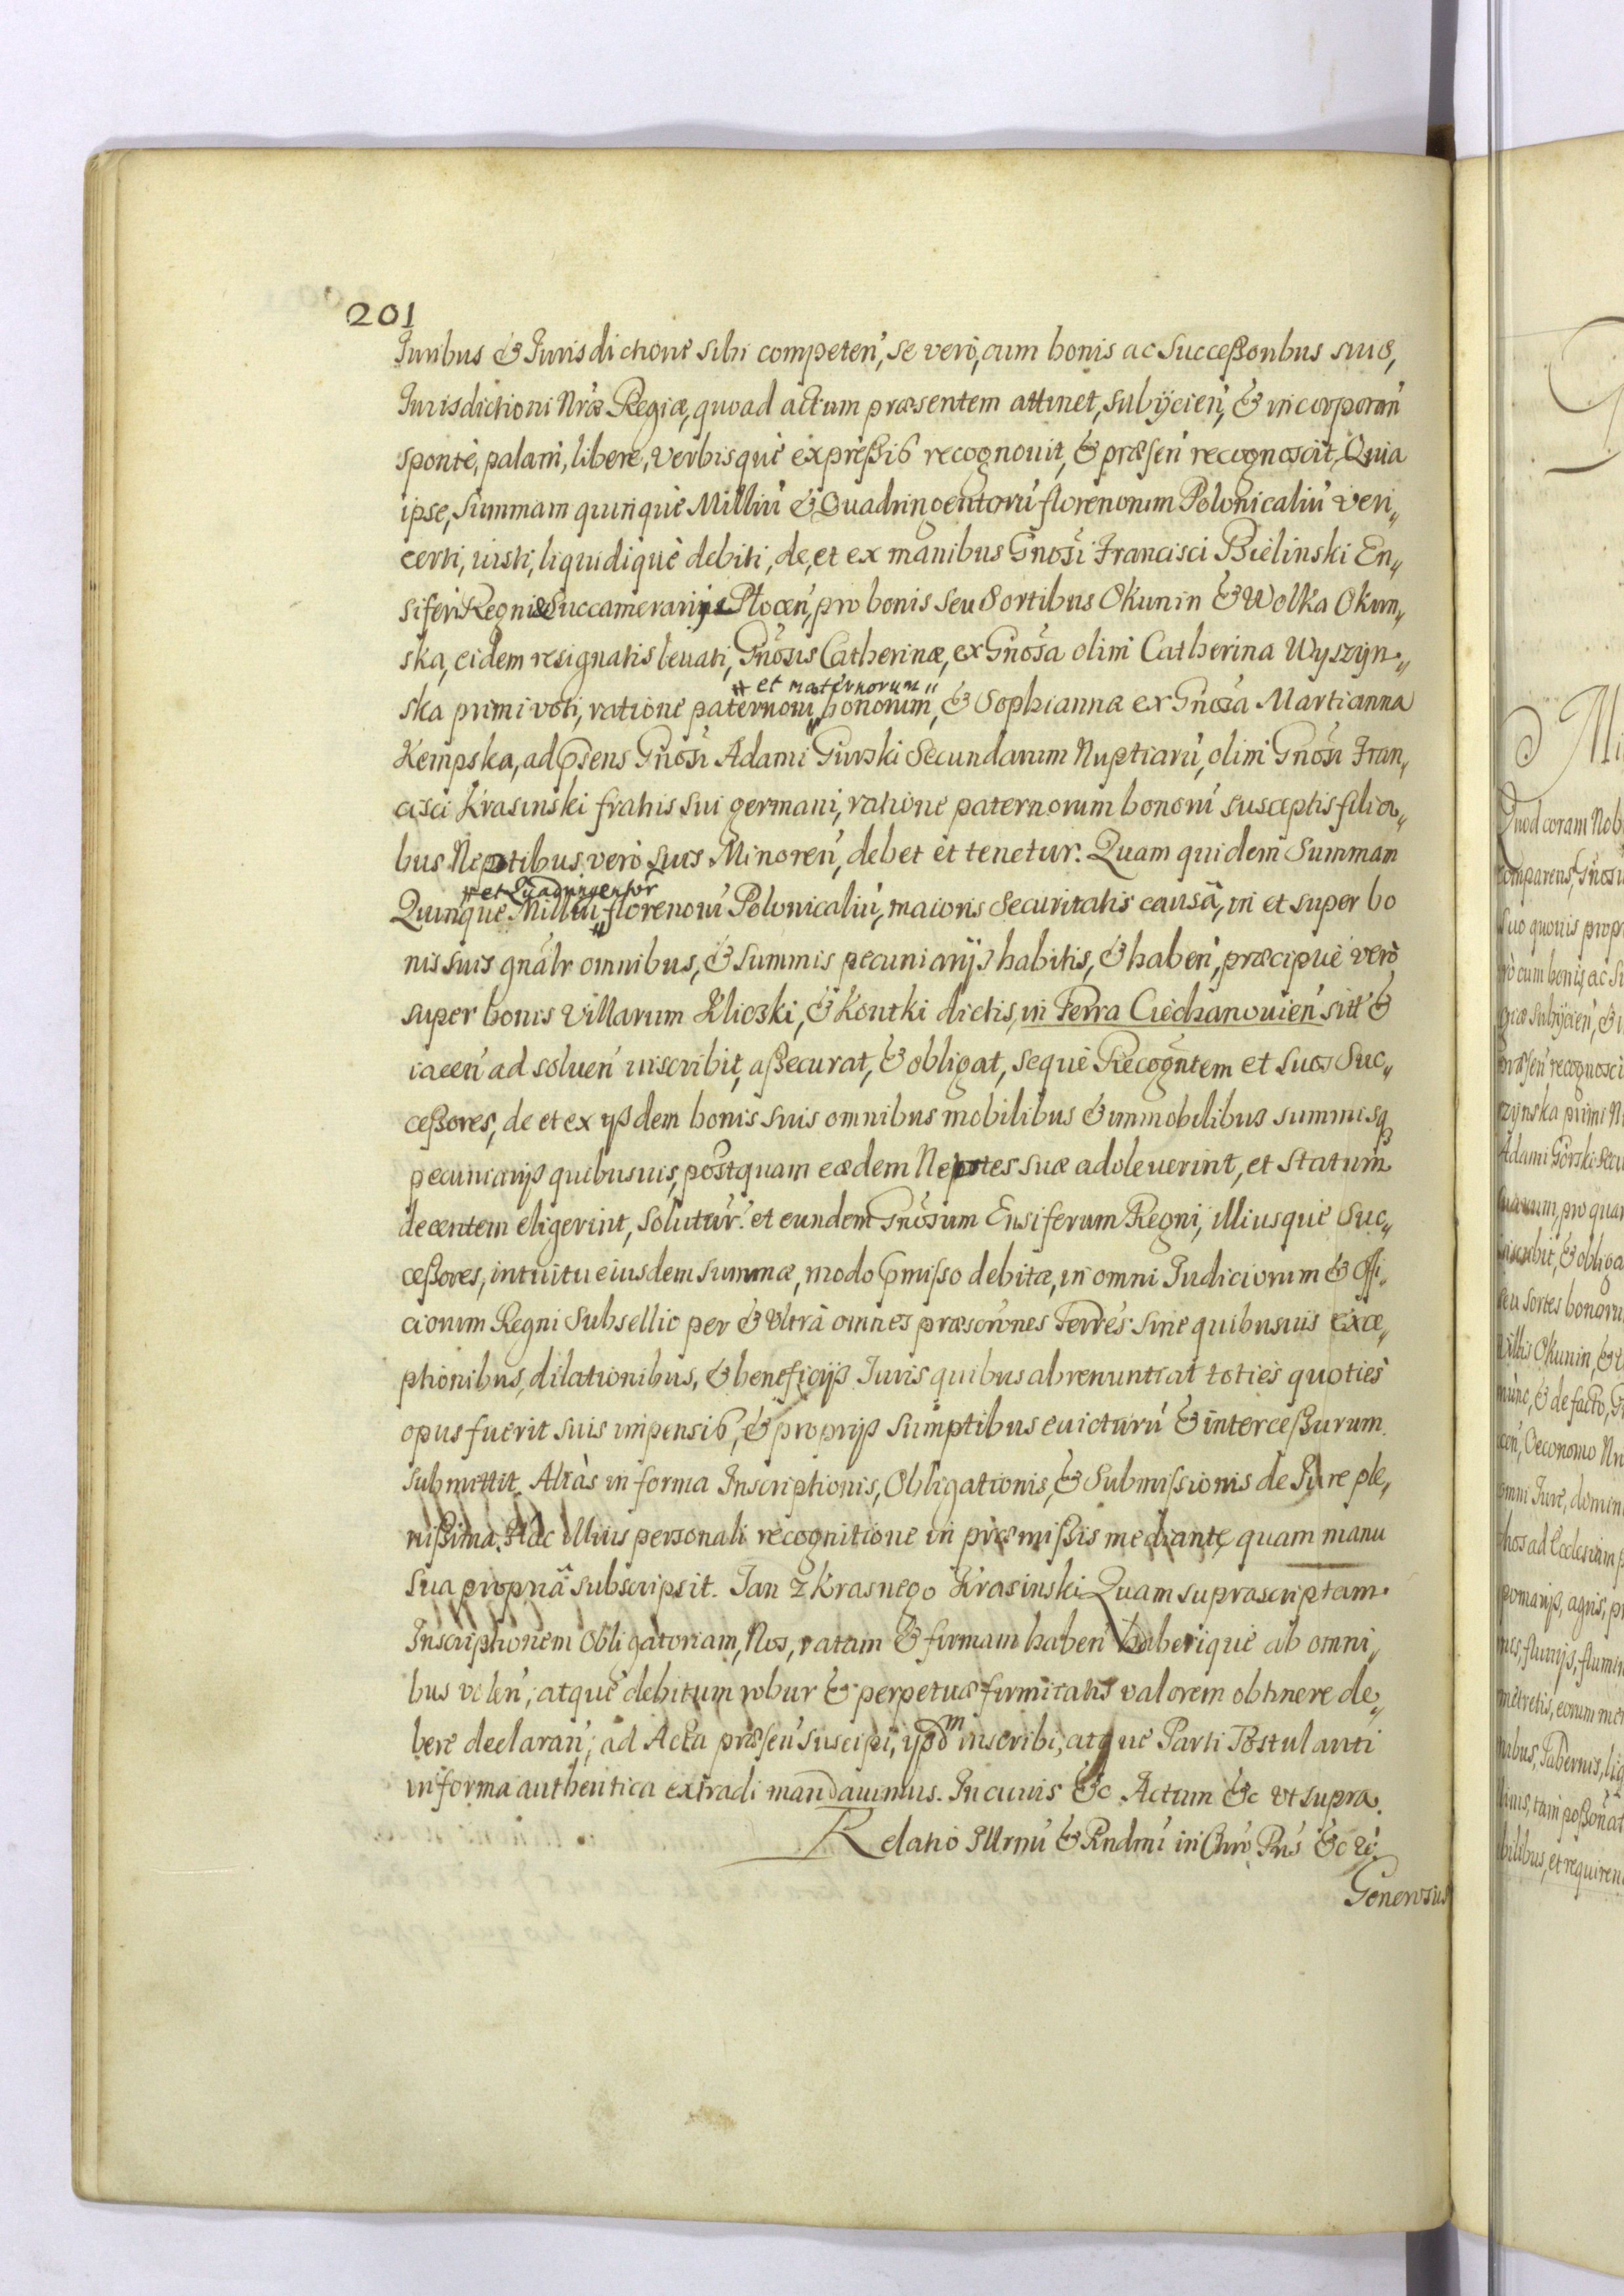 201
Juribus & Jurisdictione sibi competen, se verò, cum bonis ac Succeßoribus suis,
Jurisdictioni Nræ Regiæ, quoad actum præsentem attinet, subÿcien, & incorporan
sponte, palam, libere, verbisque expreßis recognouit, & præsen recognoscit, Quia
ipse, Summam quinque Milliu & Quadringentoru florenorum Polonicaliu veri„
certi, iusti, liquidique debiti, de, et ex manibus Gnosi Francisci Bielinski En„
siferi Regni & Succamerarij Plocen, pro bonis seu Sortibus Okunin & Wolka Okun„
ska, eidem resignatis leuati, Gnosis Catherinæ, ex Gnosa olim Catherina Wyszyn„
„ et maternorum „
ska primi voti, ratione paternoru „ bonorum, & Sophianna ex Gnosa Martianna
Kempska, ad psens Gnosi Adami Gurski Secundarum Nuptiaru, olim Gnosi Fran„
cisci Krasinski fratris sui germani, ratione paternorum bonoru susceptis filia„
bus Neptibus verò suis Minoren, debet et tenetur. Quam quidem Summam
„ et Quadringentor
Quinque Milliu „ florenoru Polonicaliu, maioris Securitatis causâ, in et super bo
nis suis gnalr omnibus, & summis pecuniarijs habitis, & haben, præcipuè verò
super bonis Villarum Kliczki, & Koutki dictis, in Terra Ciechanouien sitt &
iacen ad soluen inscribit, aßecurat, & obligat, seque Recogntem et suos Suc„
ceßores, de et ex ÿsdem bonis suis omnibus mobilibus & immobilibus summisq
pecuniarÿs quibusuis, postquam eædem Neptes suæ adoleuerint, et statum
decentem eligerint, solutur. et eundem Gnosum Ensiferum Regni, illiusque Suc„
ceßores, intuitu eiusdem summæ, modo pmisso debitæ, in omni Judiciorum & Offi„
ciorum Regni Subsellio per & Vltrà omnes præscrones Terres sine quibusuis exce„
ptionibus, dilationibus, & beneficÿs Juris quibus abrenuntiat toties quoties
opus fuerit suis impensis, & proprÿs sumptibus euicturu & interceßurum
submittit. Aliàs in forma Inscriptionis, Obligationis, & Submissionis de Jure ple„
nißima. Hac illius personali recognitione in præmißis mediante, quam manu
sua propriâ subscripsit. Jan z Krasnego Krasinski Quam suprascriptam
Inscriptionem Obligatoriam, Nos, ratam & firmam haben haberique ab omni„
bus volen; atque debitum robur & perpetuæ firmitatis valorem obtinere de„
bere declaran; ad Acta præsen suscipi, ÿsdm inscribi, atque Parti Postulanti
in forma authentica extradi mandauimus. In cuius &c. Actum &c vt supra.
Relatio Illrmi & Rndmi in Chro Pris &c
Generosus